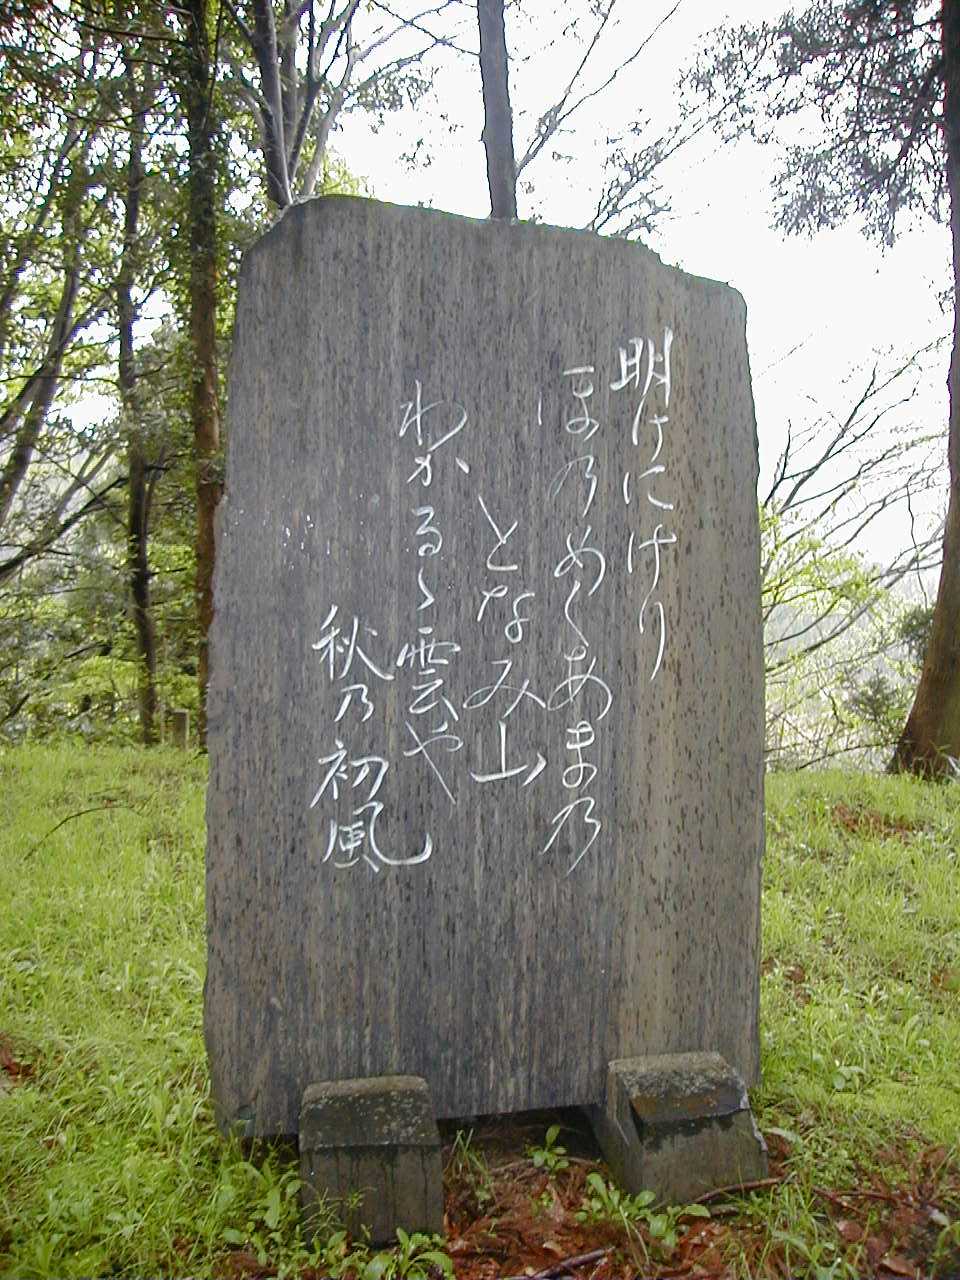 明けにけり
ほのめくあまの
となみ山
わかるゝ雲や
秋乃初風